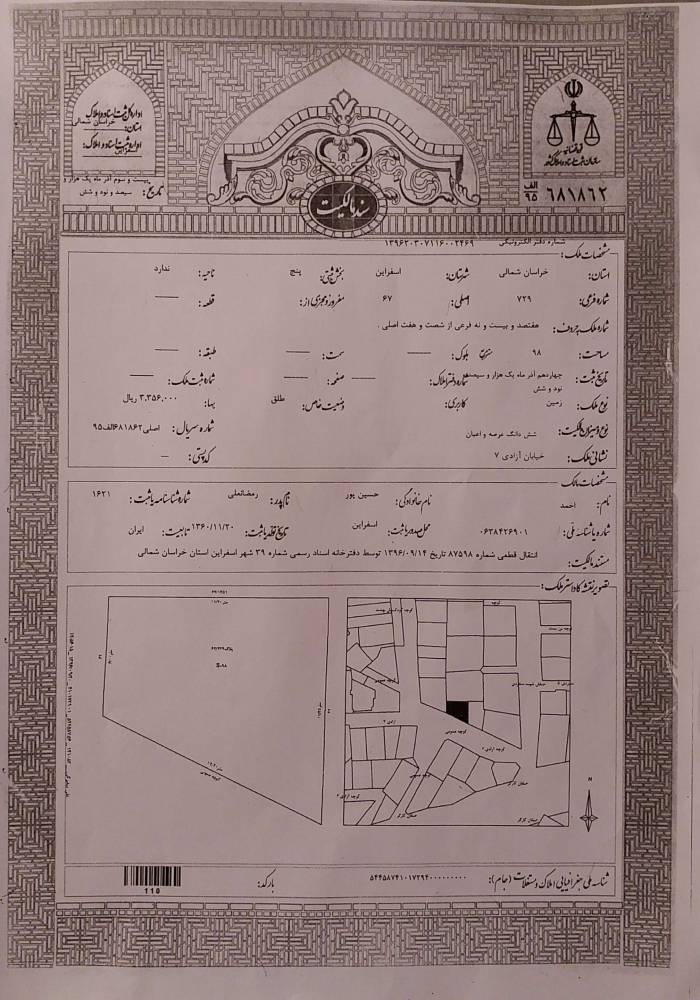 اداره کل ثبت اسناد و املاک
استان: خراسان شمالی
اداره ثبت اسناد و املاک:
اسفراین
تاریخ: بیست و سوم آذر ماه یک هزار و
سیصد و نود و شش
قوه قضائیه
سازمان ثبت اسناد و املاک کشور
الف
۹۵
۶۸۱۸۶۲
سند مالکیت
شماره دفتر الکترونیکی ۱۳۹۶۲۰۳۰۷۱۱۶۰۰۲۴۶۹
مشخصات ملک:
استان: خراسان شمالی شهرستان: اسفراین بخش ثبتی: پنج ناحیه: ندارد
شماره فرعی: ۷۲۹ اصلی: ۶۷ مفروز و مجزی از: —— قطعه: ——
شماره ملک بحروف: هفتصد و بیست و نه فرعی از شصت و هفت اصلی .
مساحت: ۹۸ متر مربع بلوک: —— سمت: —— طبقه: ——
تاریخ ثبت: چهاردهم آذر ماه یک هزار و سیصد و نود و شش شماره دفتر املاک: —— صفحه: —— شماره ثبت ملک: ——
نوع ملک: زمین کاربری: وضعیت خاص: طلق بها: ۳،۳۵۶،۰۰۰ ریال
نوع و میزان مالکیت: شش دانگ عرصه و اعیان شماره سریال: اصلی۶۸۱۸۶۲الف۹۵
نشانی ملک: خیابان آزادی ۷ کد پستی: —
مشخصات مالک
نام: احمد نام خانوادگی: حسین پور نام پدر: رمضانعلی شماره شناسنامه یا ثبت: ۱۶۲۱
شماره یا شناسه ملی: ۰۶۳۸۴۲۶۹۰۱ محل صدور یا ثبت: اسفراین تاریخ تولد یا ثبت: ۱۳۶۰/۱۱/۲۰ تابعیت: ایران
مستند مالکیت: انتقال قطعی شماره ۸۷۵۹۸ تاریخ ۱۳۹۶/۰۹/۱۴ توسط دفترخانه اسناد رسمی شماره ۳۹ شهر اسفراین استان خراسان شمالی
تصویر نقشه کاداستر ملک:
کوچه عمومی
آزادی ۲
کوچه عمومی
کوچه آزادی ۲
کوچه عمومی
N
شناسه ملی جغرافیایی املاک و مستغلات (جام):
بارکد:
110